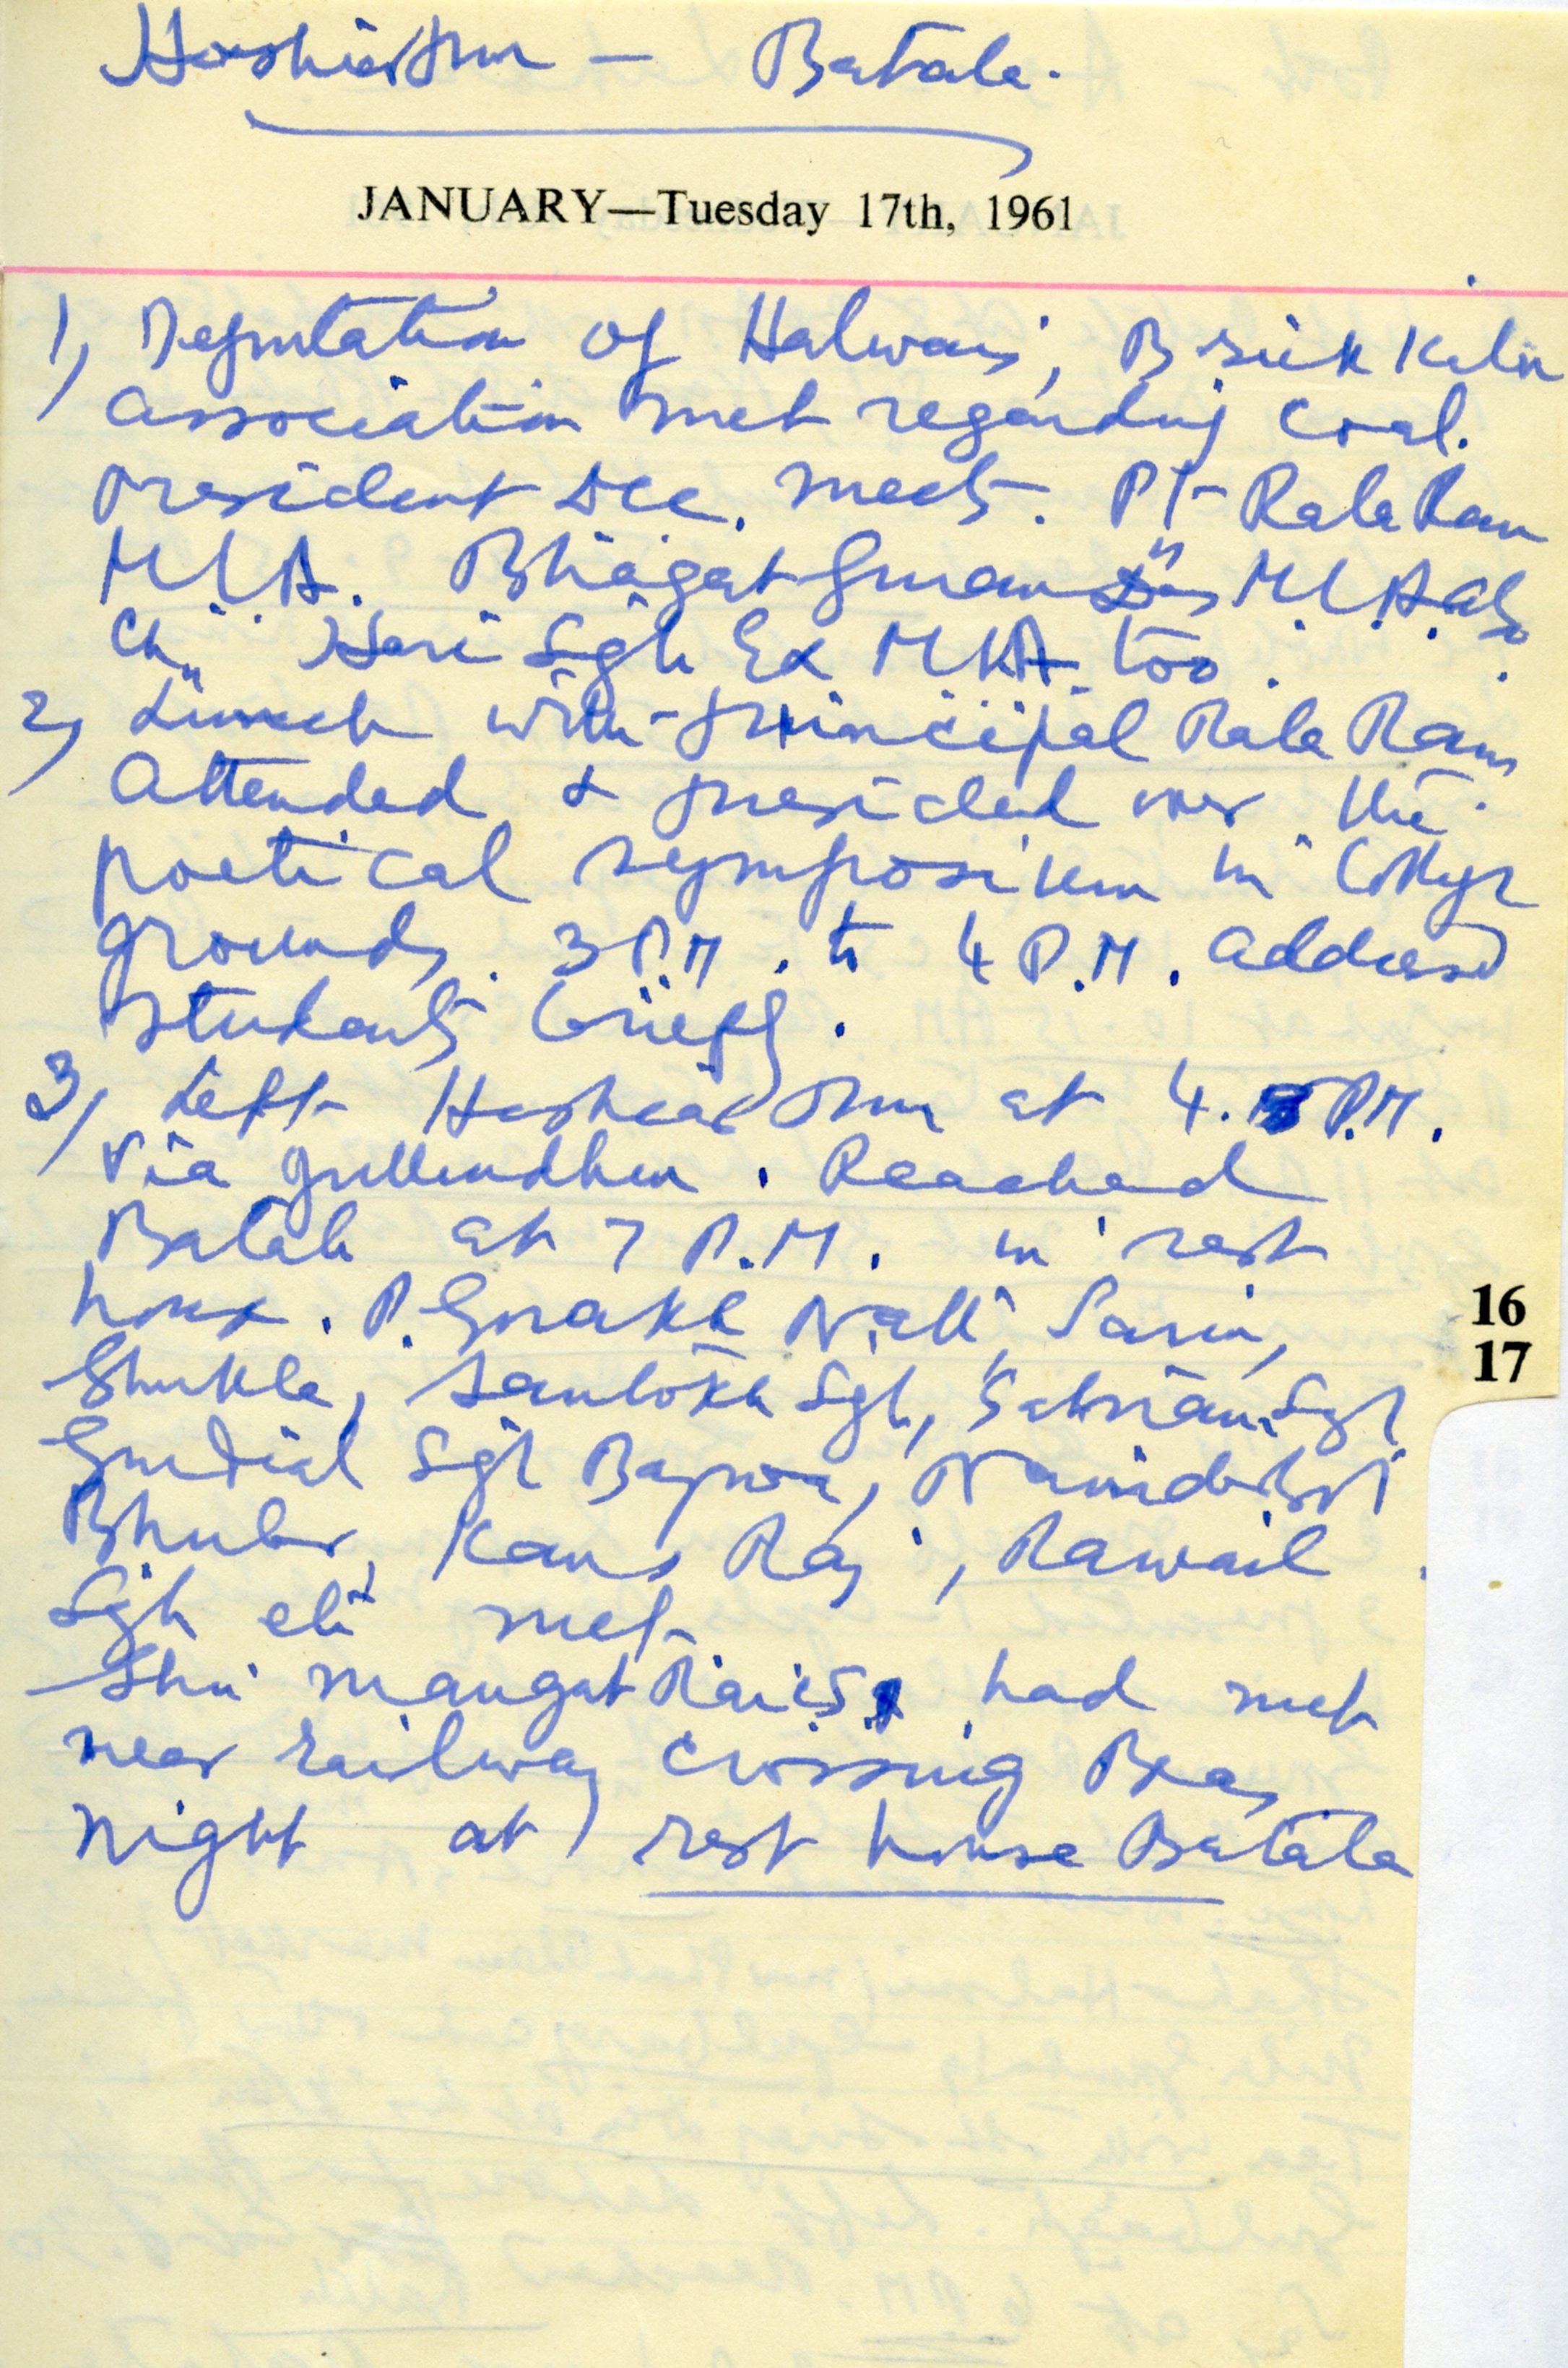 Hoshiarpur — Batala.
JANUARY—Tuesday 17th, 1961
1, Deputation of Halwais, Brick Kiln
Association met regarding coal.
President Dcc. meets. Pt Rala Ram
M.L.A. Bhagat Guran Das M.L.A. also
Ch. Hari Sgh Ex M.L.A. too.
2, Lunch with principal Rala Ram.
Attended & presided over the
poetical symposium in College
grounds. 3 P.M. to 4 P.M. address
students briefly.
3, Left Hoshiarpur at 4. P.M.
Via Jullundhur. Reached
Batala at 7 P.M. in rest
house. P. Gorakh Nath, Sarin,
Shukla, Santokh Sgh, Satnam Sgh
Gurdial Sgh Bajwa,
Kans Raj, Rawail
Sgh etc met.
Shri Mangat Rai had met
near railway crossing Beas
Night at rest house Batala
16
17